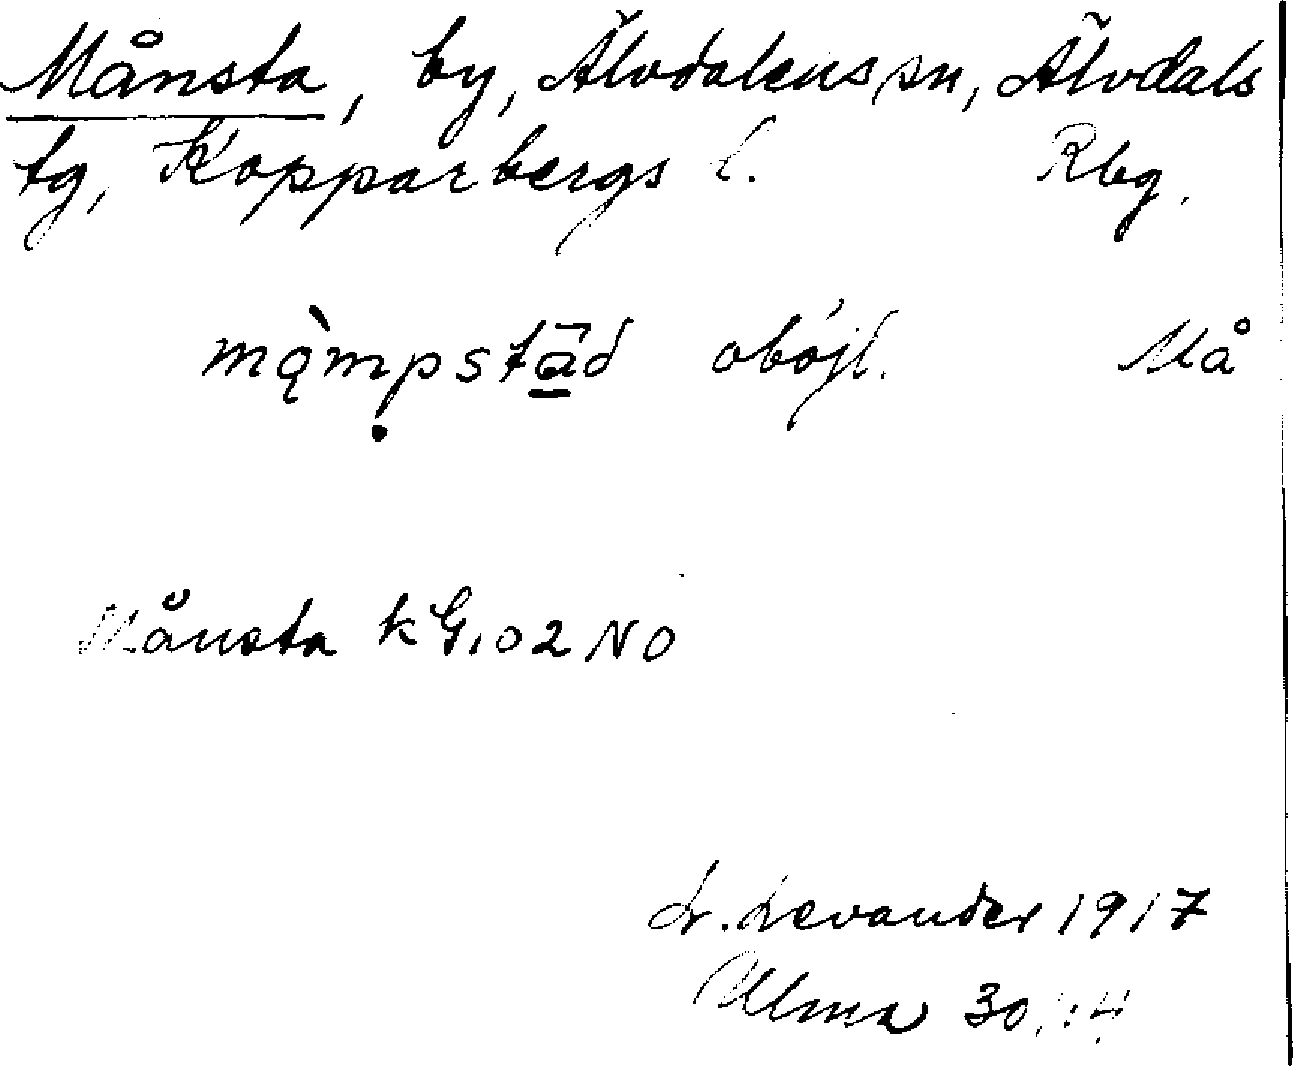 Månsta, by, Älvdalens sn, Älvdals
tg, Kopparbergs l. Rbg.
mą̀mpstā̱d oböjl. Må
Månsta kG,02 NO
L. Levander 1917
Ulma 30: